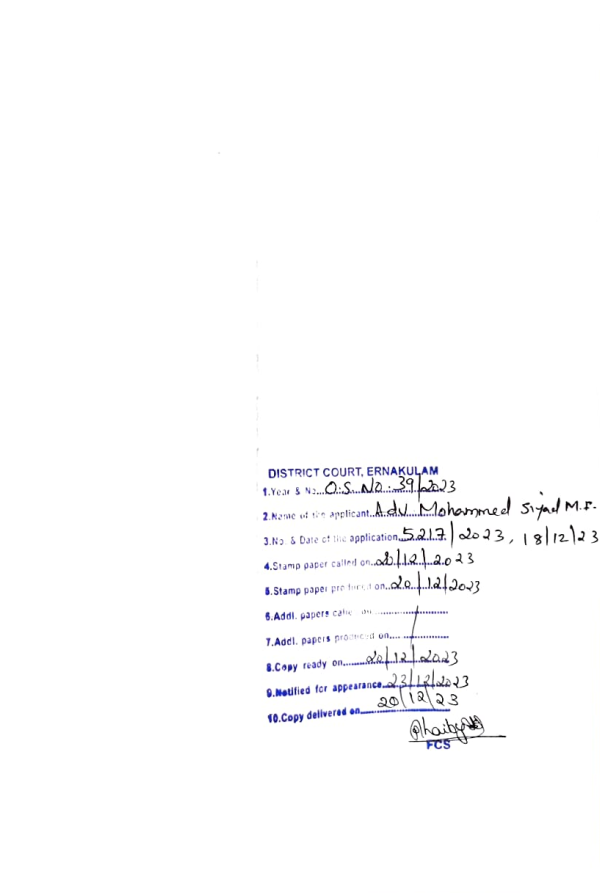 DISTRICT COURT, ERNAKULAM
1.Year & No....O.S. No. 39/2023
2.Name of the applicant..Adv. Mohammed Siyad M.
3.No. & Date of the application..5217/2023, 18/12/23
4.Stamp paper called on..20/12/2023
5.Stamp paper produced on..20/12/2023
6.Addl. papers called on .....................
7.Addl. papers produced on.... .............
8.Copy ready on........20/12/2023
9.Notified for appearance..23/12/2023
10.Copy delivered on........20/12/23
FCS